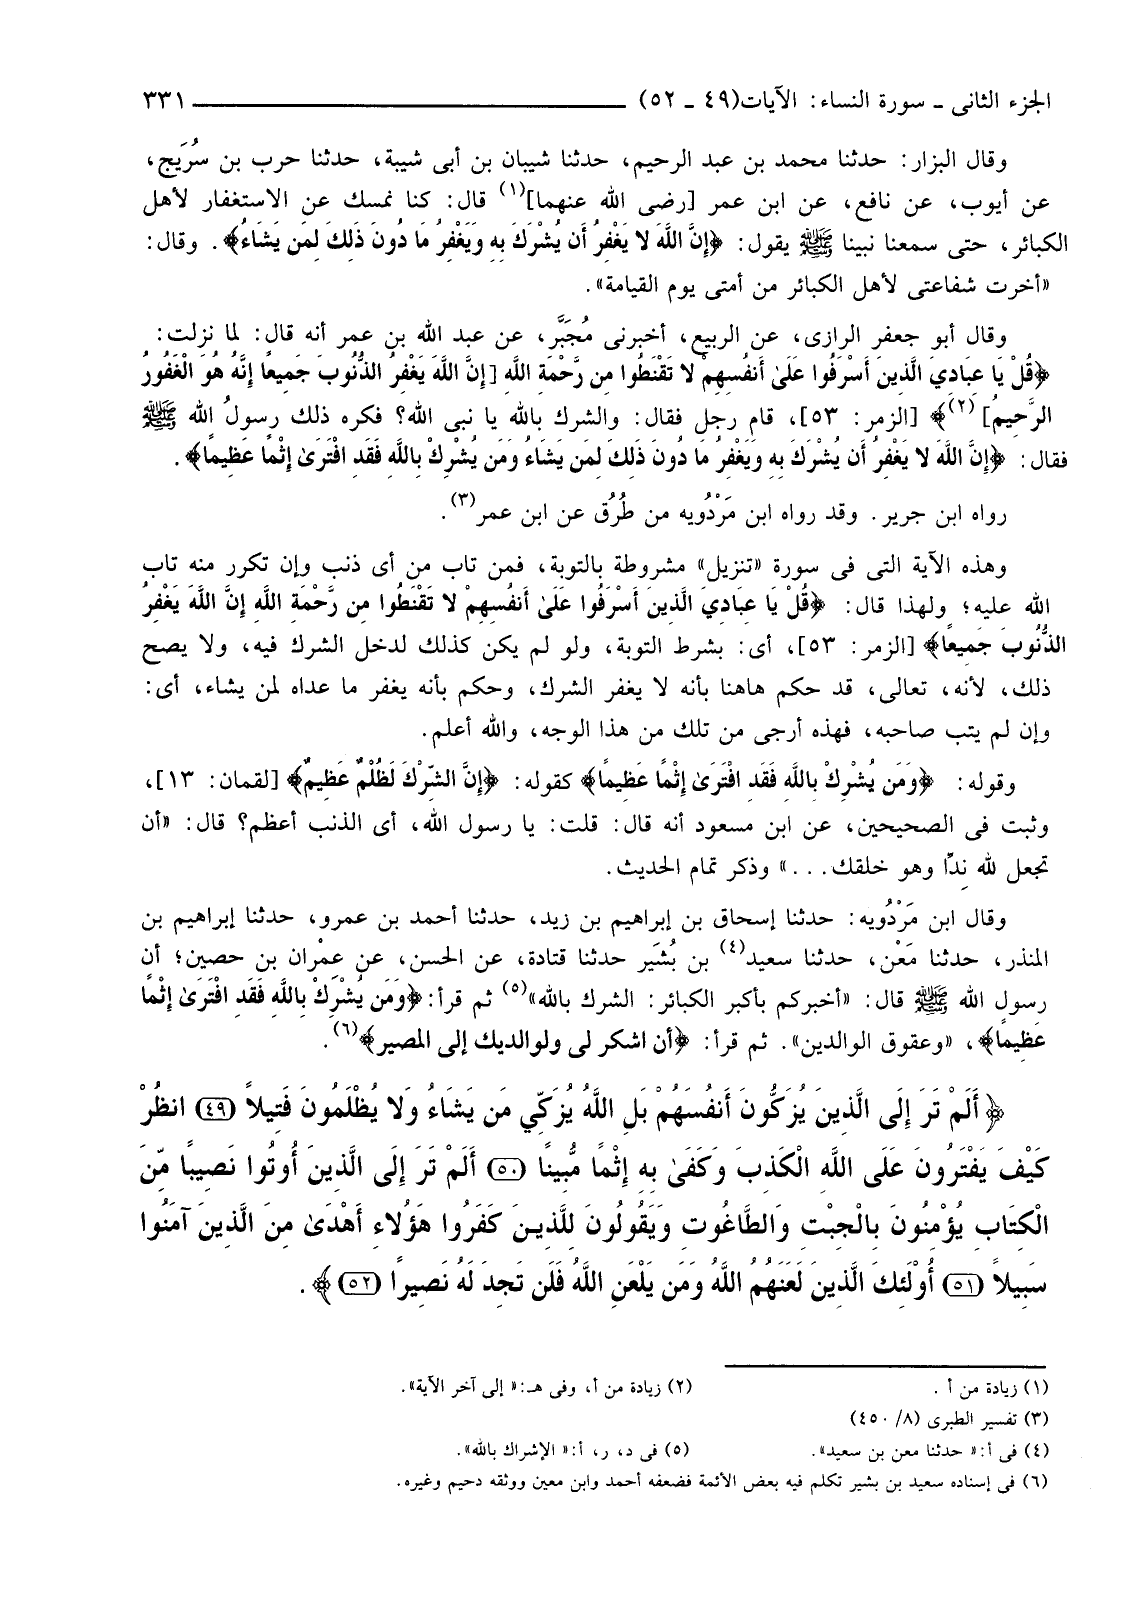 الجزء الثانى - سورة النساء: الآيات(٤٩ - ٥٢) ٣٣١
وقال البزار: حدثنا محمد بن عبد الرحيم، حدثنا شيبان بن أبى شيبة، حدثنا حرب بن سُرَيج،
عن أيوب، عن نافع، عن ابن عمر [رضى الله عنهما](١) قال: كنا نمسك عن الاستغفار لأهل
الكبائر، حتى سمعنا نبينا ﷺ يقول: ﴿إِنَّ اللَّهَ لا يَغْفِرُ أَن يُشْرَكَ بِهِ وَيَغْفِرُ مَا دُونَ ذَلِكَ لِمَن يَشَاءُ﴾. وقال:
«أخرت شفاعتى لأهل الكبائر من أمتى يوم القيامة».
وقال أبو جعفر الرازى، عن الربيع، أخبرنى مُجَبَّر، عن عبد الله بن عمر أنه قال: لما نزلت:
﴿قُلْ يَا عِبَادِيَ الَّذِينَ أَسْرَفُوا عَلَىٰ أَنفُسِهِمْ لا تَقْنَطُوا مِن رَّحْمَةِ اللَّهِ [إِنَّ اللَّهَ يَغْفِرُ الذُّنُوبَ جَمِيعاً إِنَّهُ هُوَ الْغَفُورُ
الرَّحِيمُ] (٢)﴾ [الزمر: ٥٣]، قام رجل فقال: والشرك بالله يا نبى الله؟ فكره ذلك رسولُ الله ﷺ
فقال: ﴿إِنَّ اللَّهَ لا يَغْفِرُ أَن يُشْرَكَ بِهِ وَيَغْفِرُ مَا دُونَ ذَلِكَ لِمَن يَشَاءُ وَمَن يُشْرِكْ بِاللَّهِ فَقَدِ افْتَرَىٰ إِثْمًا عَظِيمًا﴾.
رواه ابن جرير. وقد رواه ابن مَرْدُويه من طُرُق عن ابن عمر(٣).
وهذه الآية التى فى سورة «تنزيل» مشروطة بالتوبة، فمن تاب من أى ذنب وإن تكرر منه تاب
الله عليه؛ ولهذا قال: ﴿قُلْ يَا عِبَادِيَ الَّذِينَ أَسْرَفُوا عَلَىٰ أَنفُسِهِمْ لا تَقْنَطُوا مِن رَّحْمَةِ اللَّهِ إِنَّ اللَّهَ يَغْفِرُ
الذُّنُوبَ جَمِيعًا﴾ [الزمر: ٥٣]، أى: بشرط التوبة، ولو لم يكن كذلك لدخل الشرك فيه، ولا يصح
ذلك، لأنه، تعالى، قد حكم هاهنا بأنه لا يغفر الشرك، وحكم بأنه يغفر ما عداه لمن يشاء، أى:
وإن لم يتب صاحبه، فهذه أرجى من تلك من هذا الوجه، والله أعلم.
وقوله: ﴿وَمَن يُشْرِكْ بِاللَّهِ فَقَدِ افْتَرَىٰ إِثْمًا عَظِيمًا﴾ كقوله: ﴿إِنَّ الشِّرْكَ لَظُلْمٌ عَظِيمٌ﴾ [لقمان: ١٣]،
وثبت فى الصحيحين، عن ابن مسعود أنه قال: قلت: يا رسول الله، أى الذنب أعظم؟ قال: «أن
تجعل لله نِدًّا وهو خلقك...» وذكر تمام الحديث.
وقال ابن مَرْدُويه: حدثنا إسحاق بن إبراهيم بن زيد، حدثنا أحمد بن عمرو، حدثنا إبراهيم بن
المنذر، حدثنا مَعْن، حدثنا سعيد(٤) بن بُشَير حدثنا قتادة، عن الحسن، عن عِمْران بن حصين؛ أن
رسول الله ﷺ قال: «أخبركم بأكبر الكبائر: الشرك بالله»(٥) ثم قرأ: ﴿وَمَن يُشْرِكْ بِاللَّهِ فَقَدِ افْتَرَىٰ إِثْمًا
عَظِيمًا﴾، «وعقوق الوالدين». ثم قرأ: ﴿أن اشكر لى ولوالديك إلى المصير﴾(٦).
﴿أَلَمْ تَرَ إِلَى الَّذِينَ يُزَكُّونَ أَنفُسَهُمْ بَلِ اللَّهُ يُزَكِّي مَن يَشَاءُ وَلا يُظْلَمُونَ فَتِيلاً (٤٩) انظُرْ
كَيْفَ يَفْتَرُونَ عَلَى اللَّهِ الْكَذِبَ وَكَفَىٰ بِهِ إِثْمًا مُّبِينًا (٥٠) أَلَمْ تَرَ إِلَى الَّذِينَ أُوتُوا نَصِيبًا مِّنَ
الْكِتَابِ يُؤْمِنُونَ بِالْجِبْتِ وَالطَّاغُوتِ وَيَقُولُونَ لِلَّذِينَ كَفَرُوا هَؤُلاءِ أَهْدَىٰ مِنَ الَّذِينَ آمَنُوا
سَبِيلاً (٥١) أُوْلَئِكَ الَّذِينَ لَعَنَهُمُ اللَّهُ وَمَن يَلْعَنِ اللَّهُ فَلَن تَجِدَ لَهُ نَصِيرًا (٥٢)﴾.
(١) زيادة من أ. (٢) زيادة من أ، وفى هـ:« إلى آخر الآية».
(٣) تفسير الطبرى (٨/ ٤٥٠)
(٤) فى أ:« حدثنا معن بن سعيد». (٥) فى د، ر، أ:« الإشراك بالله».
(٦) فى إسناده سعيد بن بشير تكلم فيه بعض الأئمة فضعفه أحمد وابن معين ووثقه دحيم وغيره.